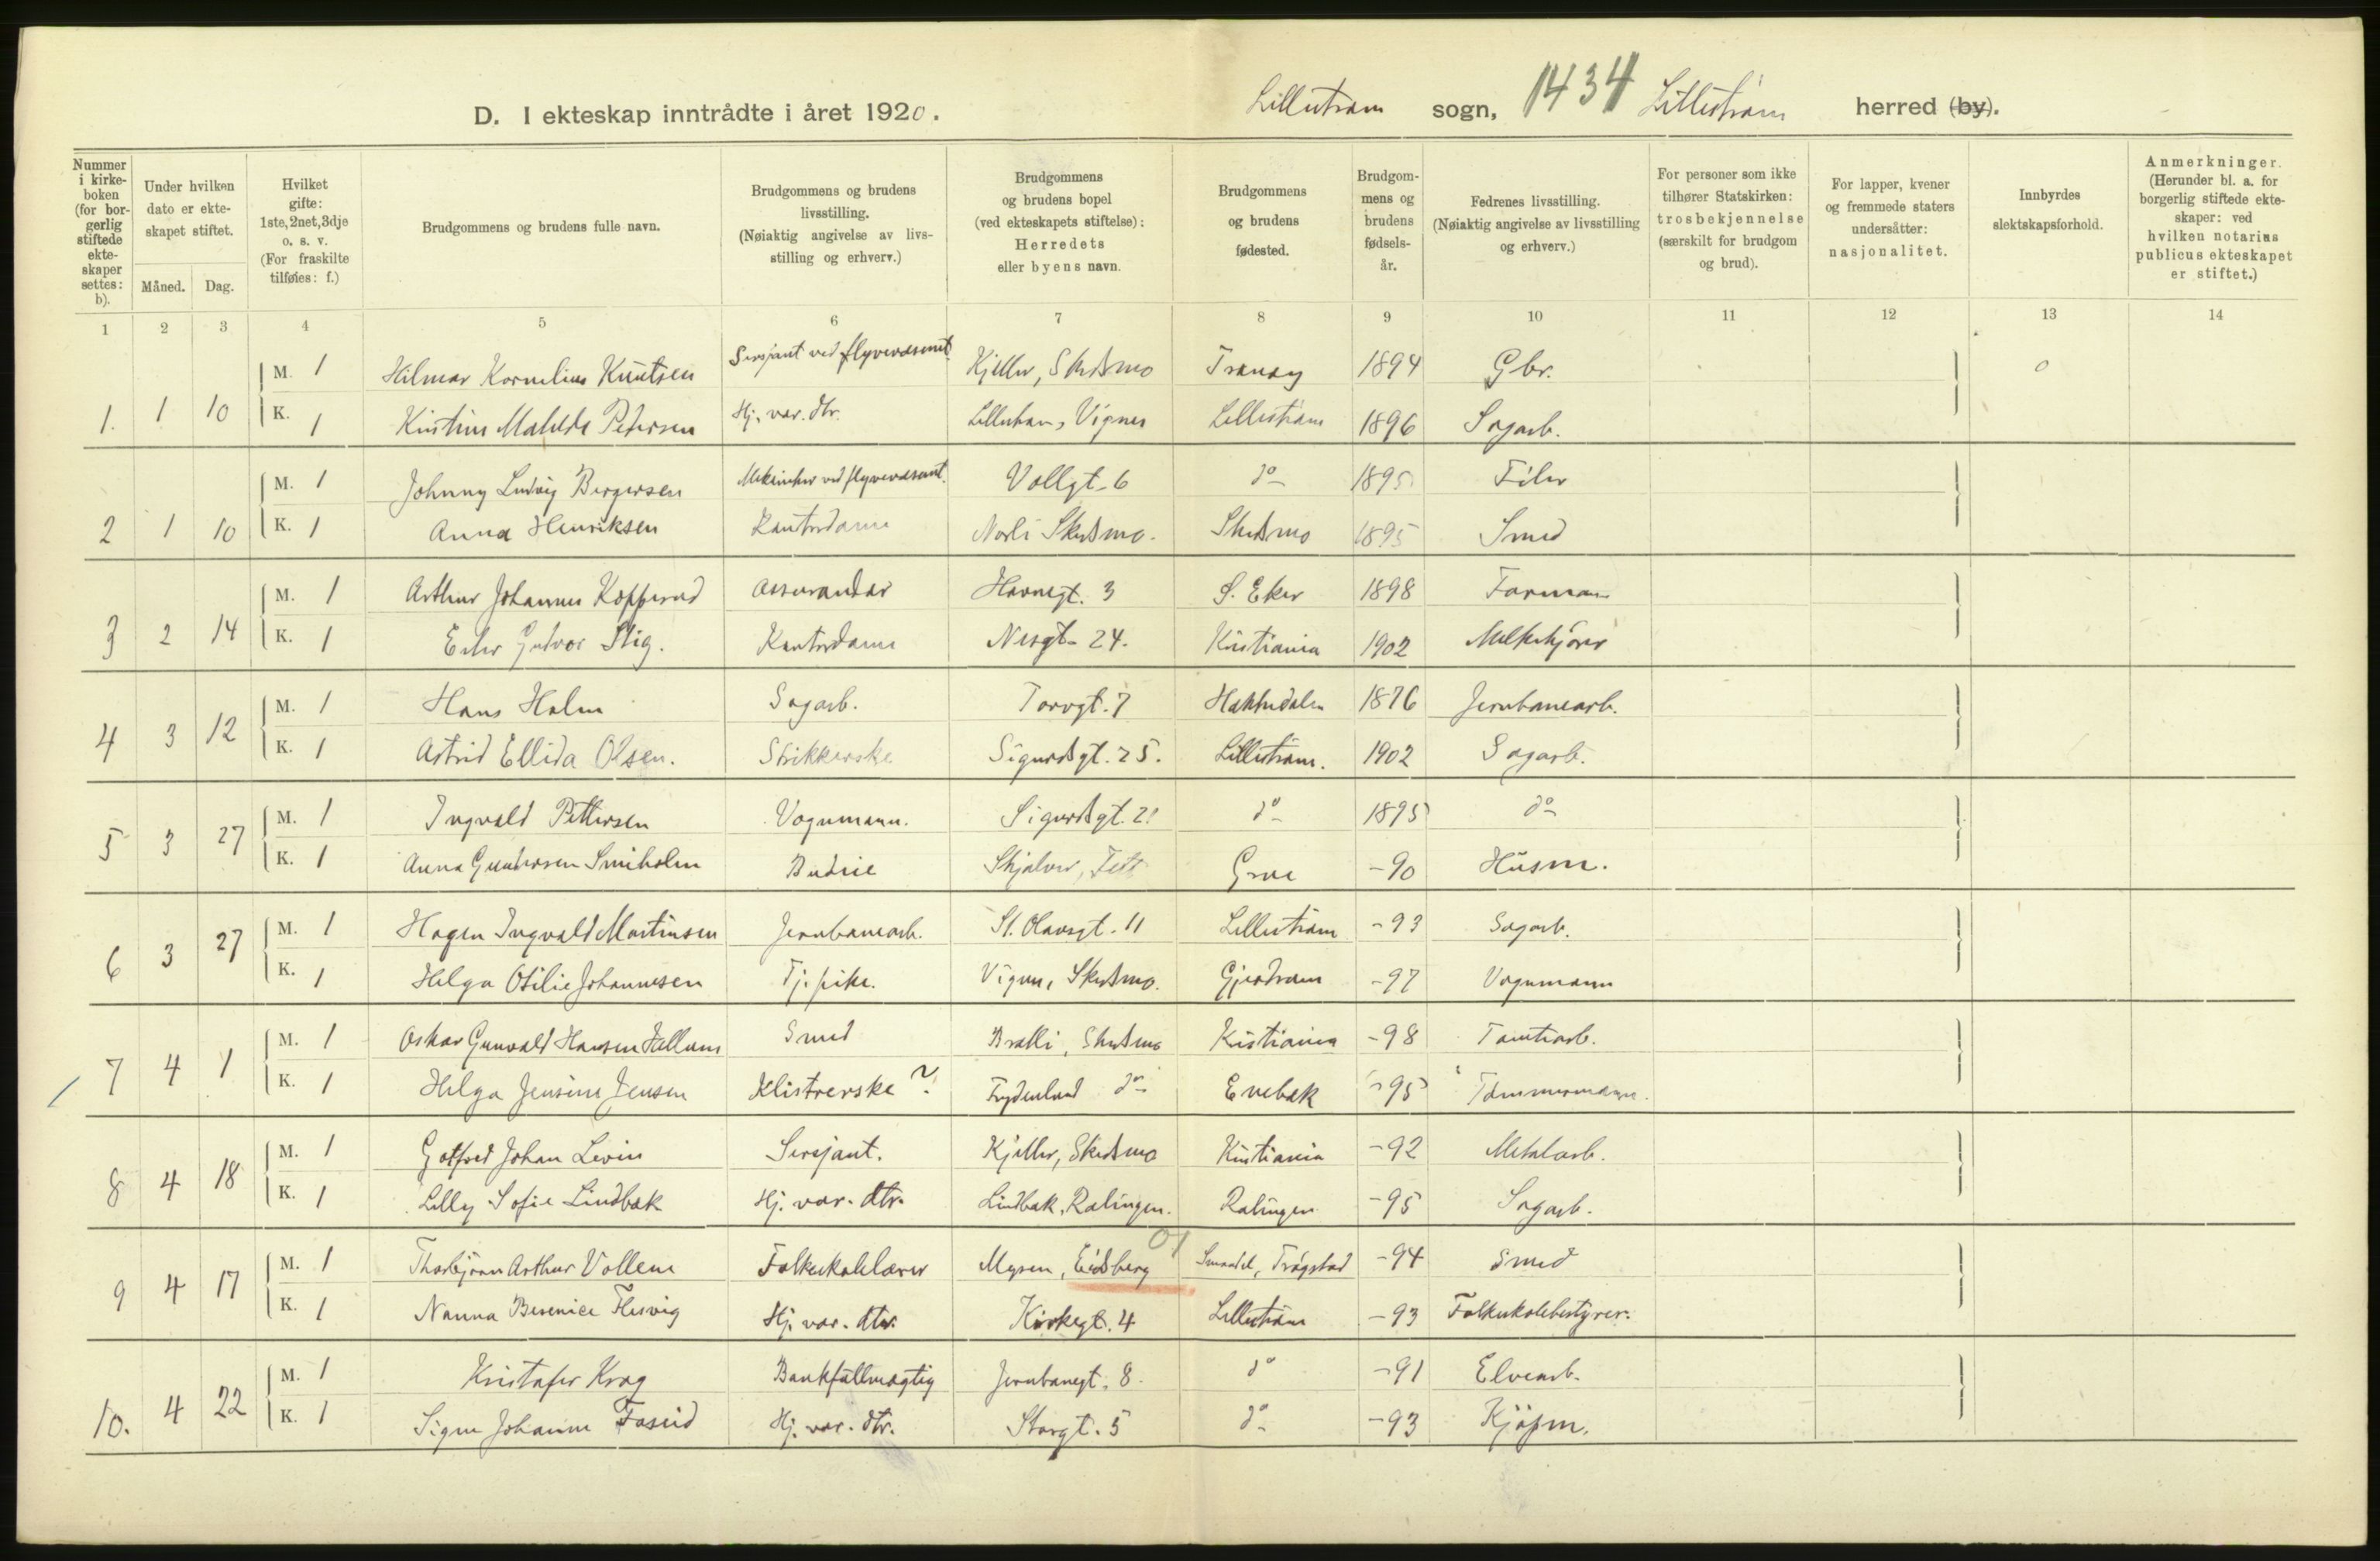 D. I ekteskap inntrådte i året 1920. Lillestrøm sogn, 1434 Lillestrøm herred (by).
Nummer i kirke-boken (for bor-gerlig stiftede ekte-skaper settes: b).
Under hvilken dato er ekte-skapet stiftet.
Måned. Dag.
Hvilket gifte: 1ste, 2net, 3dje o. s. v. (For fraskilte tilføies: f.)
Brudgommens og brudens fulle navn.
Brudgommens og brudens livsstilling. (Nøiaktig angivelse av livs-stilling og erhverv.)
Brudgommens og brudens bopel (ved ekteskapets stiftelse): Herredets eller byens navn.
Brudgommens og brudens fødested.
Brudgom-mens og brudens fødsels-år.
Fedrenes livsstilling. (Nøiaktig angivelse av livsstilling og erhverv.)
For personer som ikke tilhører Statskirken: trosbekjennelse (særskilt for brudgom og brud).
For lapper, kvener og fremmede staters undersåtter: nasjonalitet.
Innbyrdes slektskapsforhold.
Anmerkninger. (Herunder bl. a. for borgerlig stiftede ekte-skaper: ved hvilken notarius publicus ekteskapet er stiftet.)
1 2 3 4 5 6 7 8 9 10 11 12 13 14
M. 1 Hilmar Kornelius Knutsen Sersjant ved flyvevæsenet Kjeller, Skedsmo Tranøy 1894 Gbr. 0
1. 1 10 K. 1 Kristine Matilde Petersen Hj. vær. dtr. Lillestrøm, Vignes Lillestrøm 1896 Sagarb.
M. 1 Johnny Ludvig Bergersen Mekaniker ved flyvevæsenet. Vollgt. 6 do 1895 Filer
2 1 10 K. 1 Anna Henriksen Kontordame Norli Skedsmo. Skedsmo 1895 Smed
M. 1 Arthur Johannes Kopperud Assurandør Havnegt. 3 S. Eker 1898 Formann
3 2 14 K. 1 Ester Gudvor Stig. Kontordame Nesgt. 24. Kristiania 1902 Melkekjører
M. 1 Hans Holm Sagarb. Torvgt. 7 Hakkedalen 1876 Jernbanearb.
4 3 12 K. 1 Astrid Ellida Olsen. Strikkerske Sigurdsgt. 25. Lillestrøm. 1902 Sagarb.
M. 1 Ingvald Pettersen Vognmann. Sigurdsgt. 21 do 1895 do
5 3 27 K. 1 Anna Gundersen Smiholm Budeie Skjalver, Fet Grue -90 Husm.
M. 1 Hagen Ingvald Martinsen Jernbanearb. St. Olavsgt. 11 Lillestrøm -93 Sagarb.
6 3 27 K. 1 Helga Otilie Johannesen Tj. pike. Vignes, Skedsmo. Gjerdrum -97 Vognmann
M. 1 Oskar Gunvald Hansen Hellum Smed Bratli, Skedsmo Kristiania -98 Tomtearb.
7 4 1 K. 1 Helga Jensine Jensen Klistrerske ? Frydenlund do Enebak -95 Tømmermann.
M. 1 Gotfred Johan Levin Sersjant. Kjeller, Skedsmo Kristiania -92 Metalarb.
8 4 18 K. 1 Lilly Sofie Lindbak Hj. vær. dtr. Lindbak, Rælingen. Rælingen -95 Sagarb.
M. 1 Thorbjørn Arthur Vollene Folkeskolelærer Mysen, Eidsberg 01 Trøgstad -94 Smed
9 4 17 K. 1 Nanna Berenice Flesvig Hj. vær. dtr. Kirkegt. 4 Lillestrøm -93 Folkeskolebestyrer.
M. 1 Kristofer Krog Bankfullmægtig Jernbanegt. 8. do -91 Elvearb.
10. 4 22 K. 1 Signe Johanne Fosseid Hj. vær. dtr. Storgt. 5 do -93 Kjøpm.